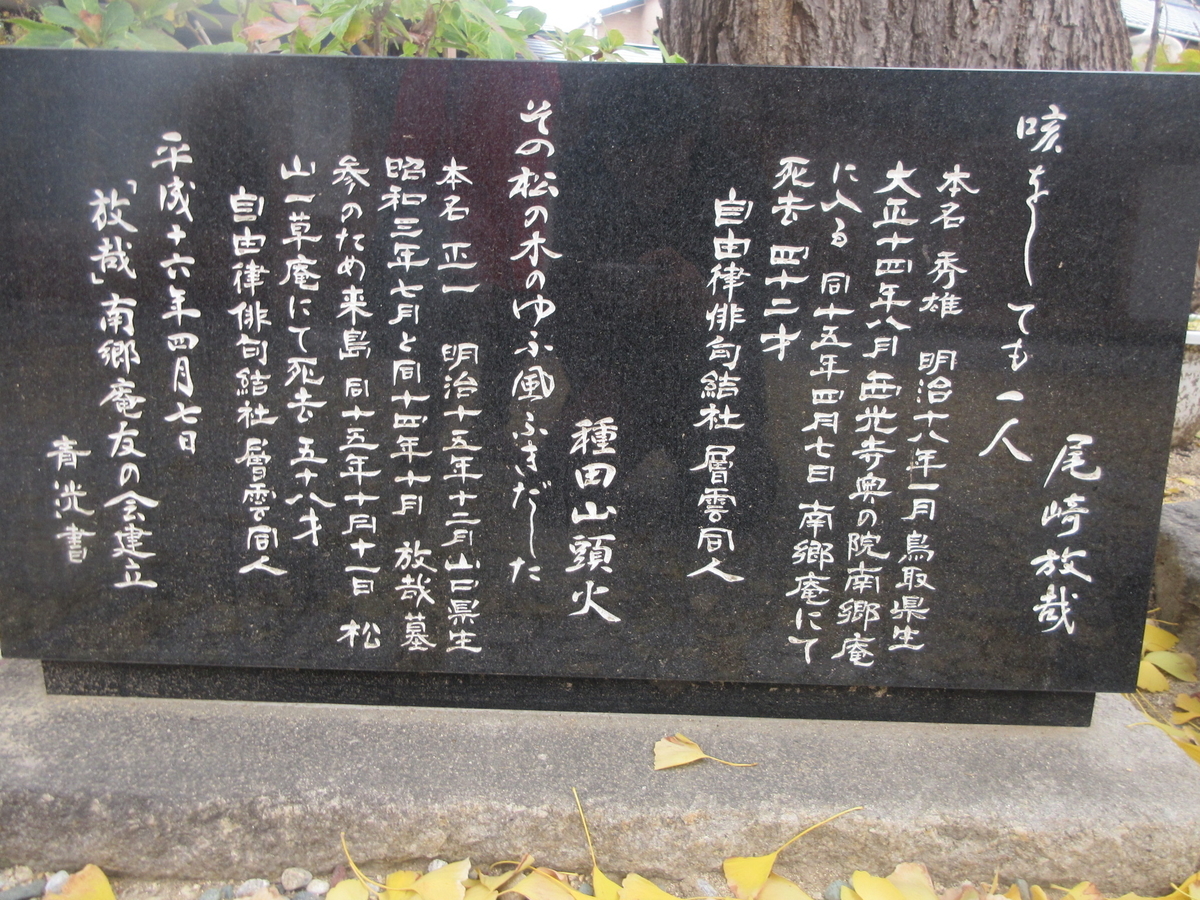 咳をしても一人
尾崎放哉
本名 秀雄 明治十八年一月鳥取県生
大正十四年八月西光寺奥の院南郷庵
に入る 同十五年四月七日 南郷庵にて
死去 四十二才
自由律俳句結社 層雲同人
種田山頭火
その松の木のゆふ風ふきだした
本名 正一 明治十五年十二月山口県生
昭和三年七月と同十四年十月 放哉墓
参のため来島 同十五年十月十一日 松
山一草庵にて死去 五十八才
自由律俳句結社 層雲同人
平成十六年四月七日
「放哉」南郷庵友の会建立
青洸書